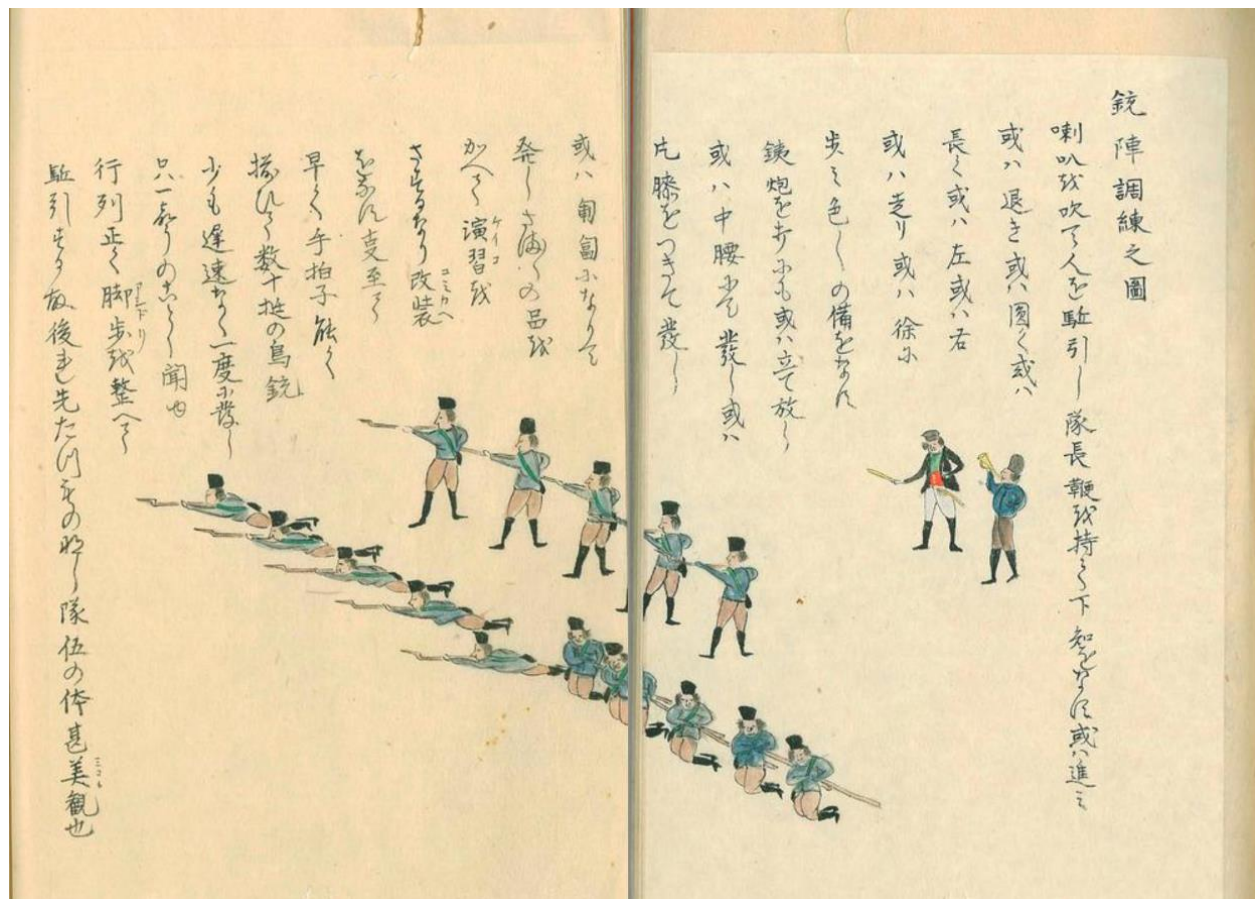 銃陣調練之圖
喇叭越吹て人を駈引し隊長鞭越持て下知をなす或ハ進ミ
或ハ退き或ハ圓く或ハ
長く或ハ左或ハ右
或ハ走り或ハ徐小
歩ミ色〱の備をなす
銕炮を打小も或ハ立て放し
或ハ中腰小て發し或ハ
片膝をつきて發し
或ハ匍匐小なりて
発しさま〱の品越
かへて演習越
ケイコ
さするなり改装
コミカヘ
をなす支至て
早く手拍子能く
揃ひて数十挺の鳥銃
少も遅速なく一度小發し
只一聲のことく聞ゆ
行列正く脚歩越整へて
アシドリ
駈引する故後れ先たつものなし隊伍の体甚美観也
ミコト